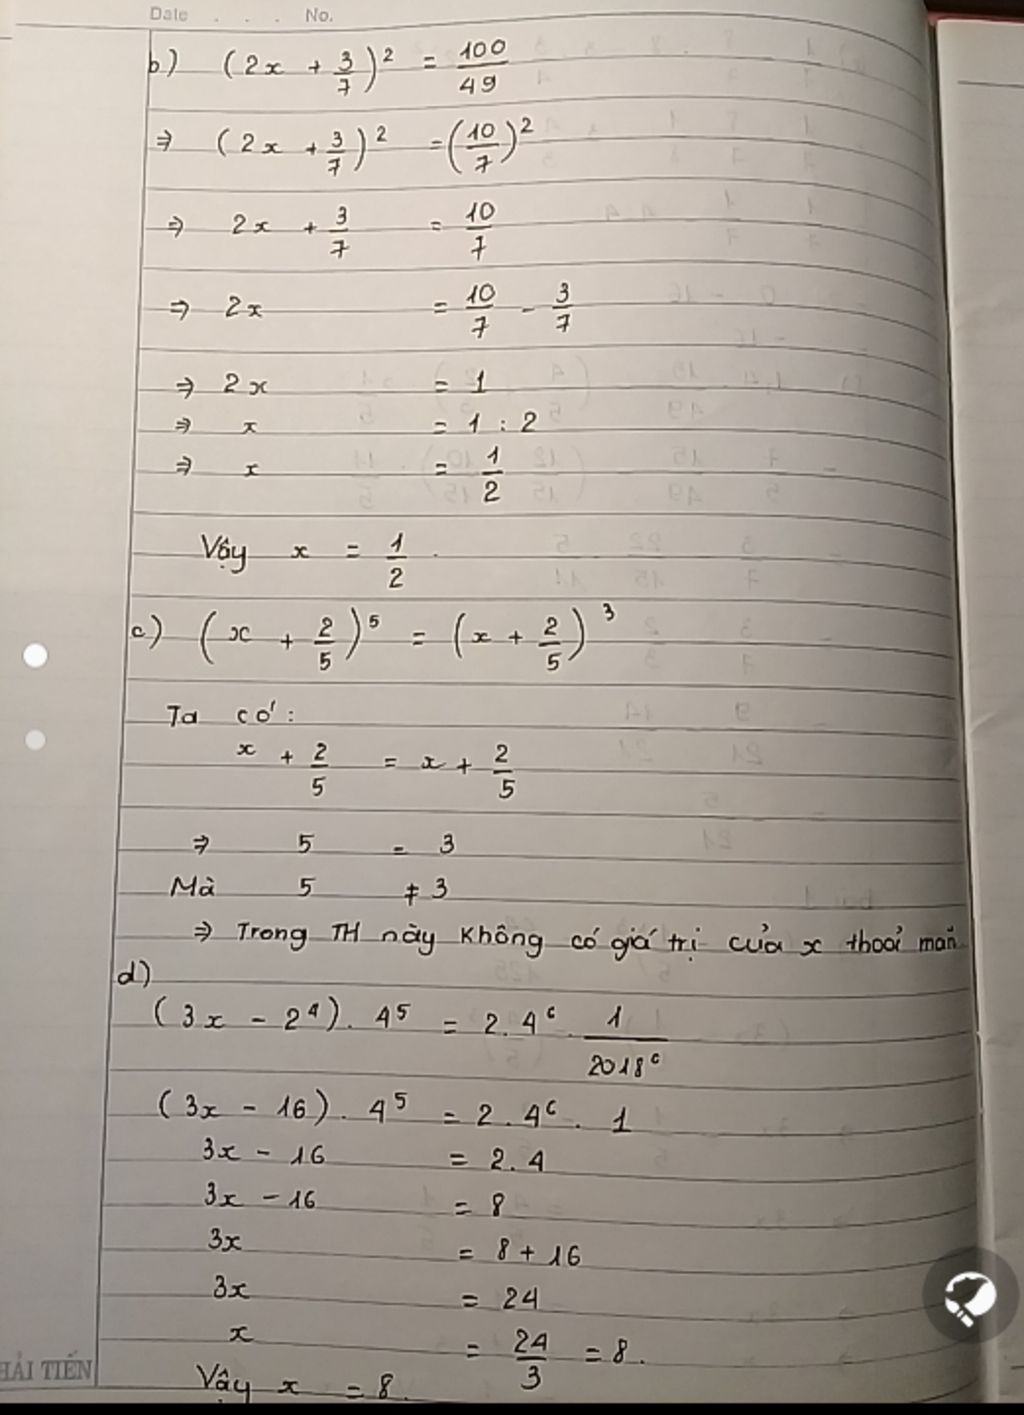 Date . . . No.
b) (2x + 3/7)² = 100/49
⇒ (2x + 3/7)² = (10/7)²
⇒ 2x + 3/7 = 10/7
⇒ 2x = 10/7 - 3/7
⇒ 2x = 1
⇒ x = 1 : 2
⇒ x = 1/2
Vậy x = 1/2 .
c) (x + 2/5)⁵ = (x + 2/5)³
Ta có :
x + 2/5 = x + 2/5
⇒ 5 = 3
Mà 5 ≠ 3
⇒ Trong TH này không có giá trị của x thoả mãn
d)
(3x - 2⁴) . 4⁵ = 2 . 4⁶ . 1/2018⁰
(3x - 16) . 4⁵ = 2 . 4⁶ . 1
3x - 16 = 2 . 4
3x - 16 = 8
3x = 8 + 16
3x = 24
x = 24/3 = 8 .
HẢI TIẾN
Vậy x = 8 .